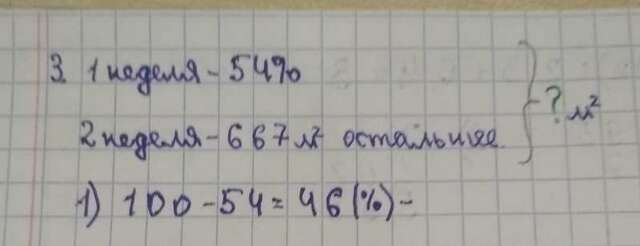 3. 1 неделя - 54%
2 неделя - 667 м² остальные
? м²
1) 100 - 54 = 46 (%) -